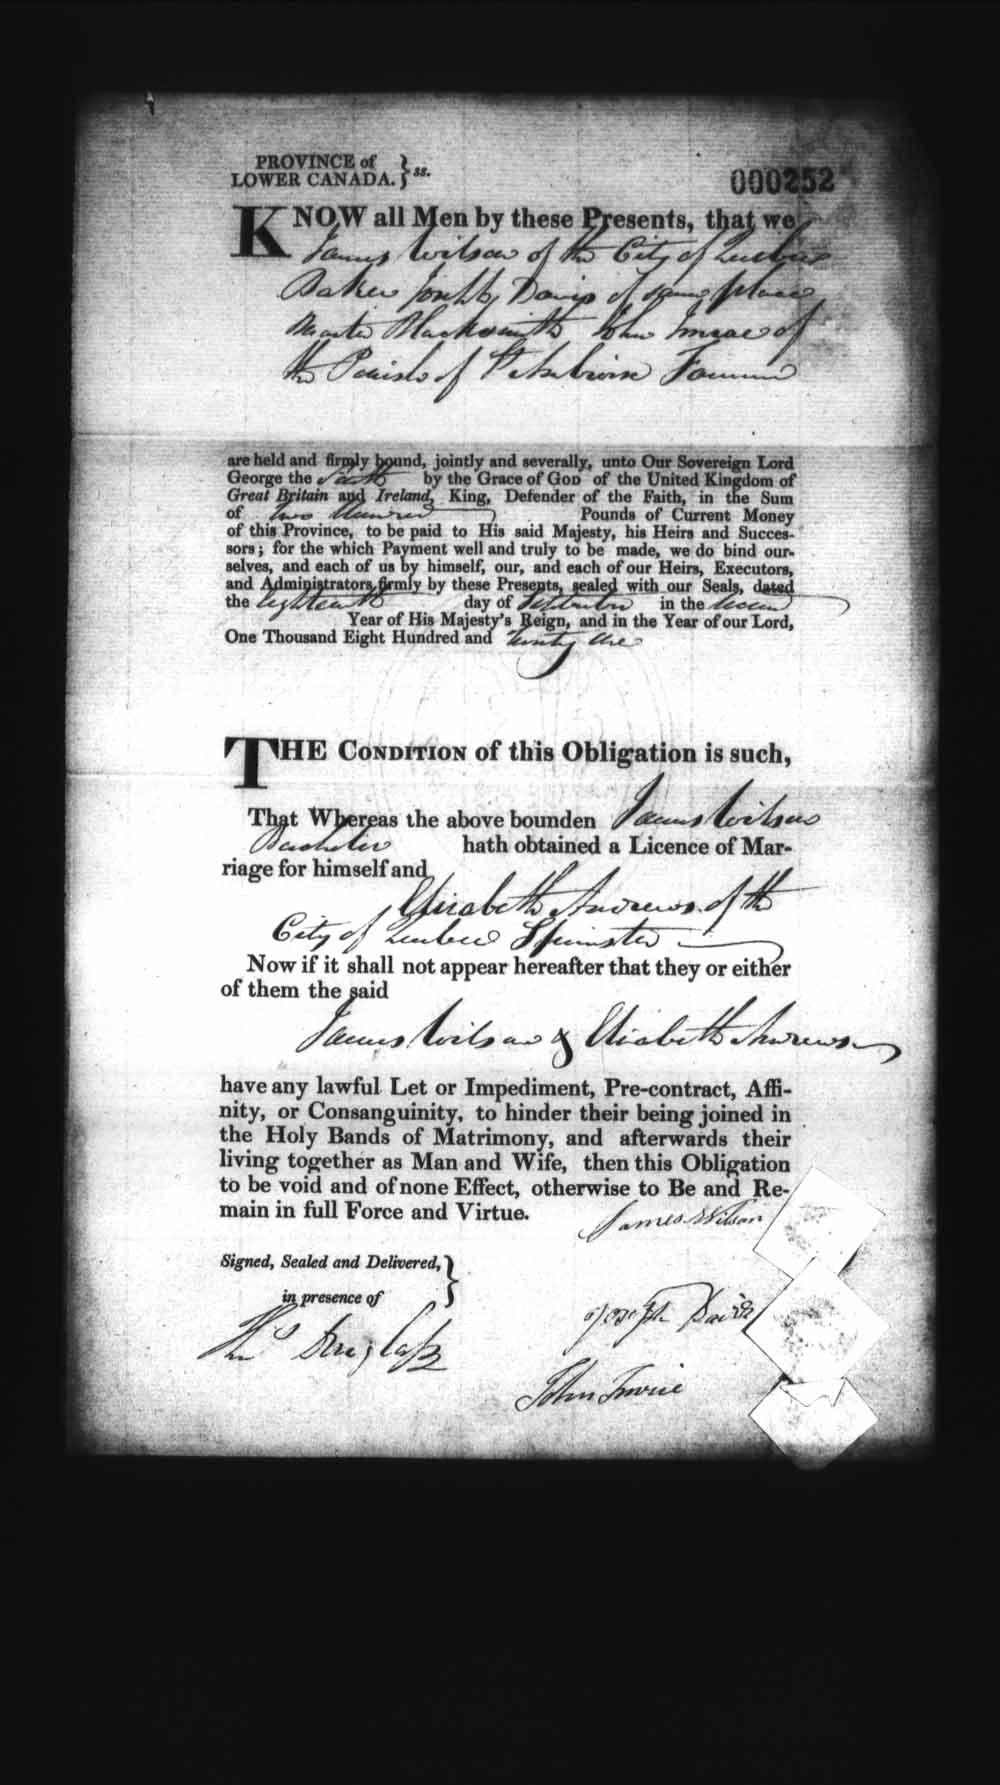 PROVINCE of
LOWER CANADA. } ss.
000252
KNOW all Men by these Presents, that we
James Wilson of the City of Quebec
Baker Joseph Davis of same place
Master Blacksmith John of
the Parish of St
are held and firmly bound, jointly and severally, unto Our Sovereign Lord
George the by the Grace of GOD of the United Kingdom of
Great Britain and Ireland, King, Defender of the Faith, in the Sum
of Two Hundred Pounds of Current Money
of this Province, to be paid to His said Majesty, his Heirs and Succes-
sors; for the which Payment well and truly to be made, we do bind our-
selves, and each of us by himself, our, and each of our Heirs, Executors,
and Administrators, firmly by these Presents, sealed with our Seals, dated
the Eighteenth day of September in the Second
Year of His Majesty's Reign, and in the Year of our Lord,
One Thousand Eight Hundred and twenty One
THE CONDITION of this Obligation is such,
That Whereas the above bounden James Wilson
Bachelor hath obtained a Licence of Mar-
riage for himself and
Elizabeth Andrews of the
City of Quebec Spinster
Now if it shall not appear hereafter that they or either
of them the said
James Wilson & Elizabeth Andrews
have any lawful Let or Impediment, Pre-contract, Affi-
nity, or Consanguinity, to hinder their being joined in
the Holy Bands of Matrimony, and afterwards their
living together as Man and Wife, then this Obligation
to be void and of none Effect, otherwise to Be and Re-
main in full Force and Virtue.
James Wilson
Signed, Sealed and Delivered, }
in presence of
Joseph Davis
Thos Douglass
John